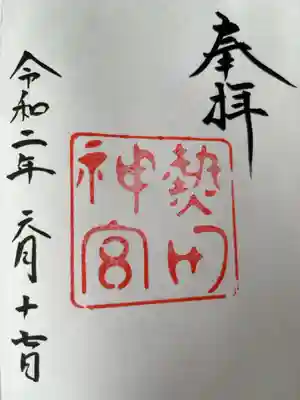 奉拝
熱田
神宮
令和二年六月十七日